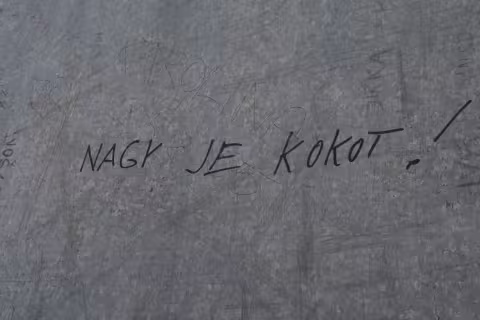 NAGY JE KOKOT.!